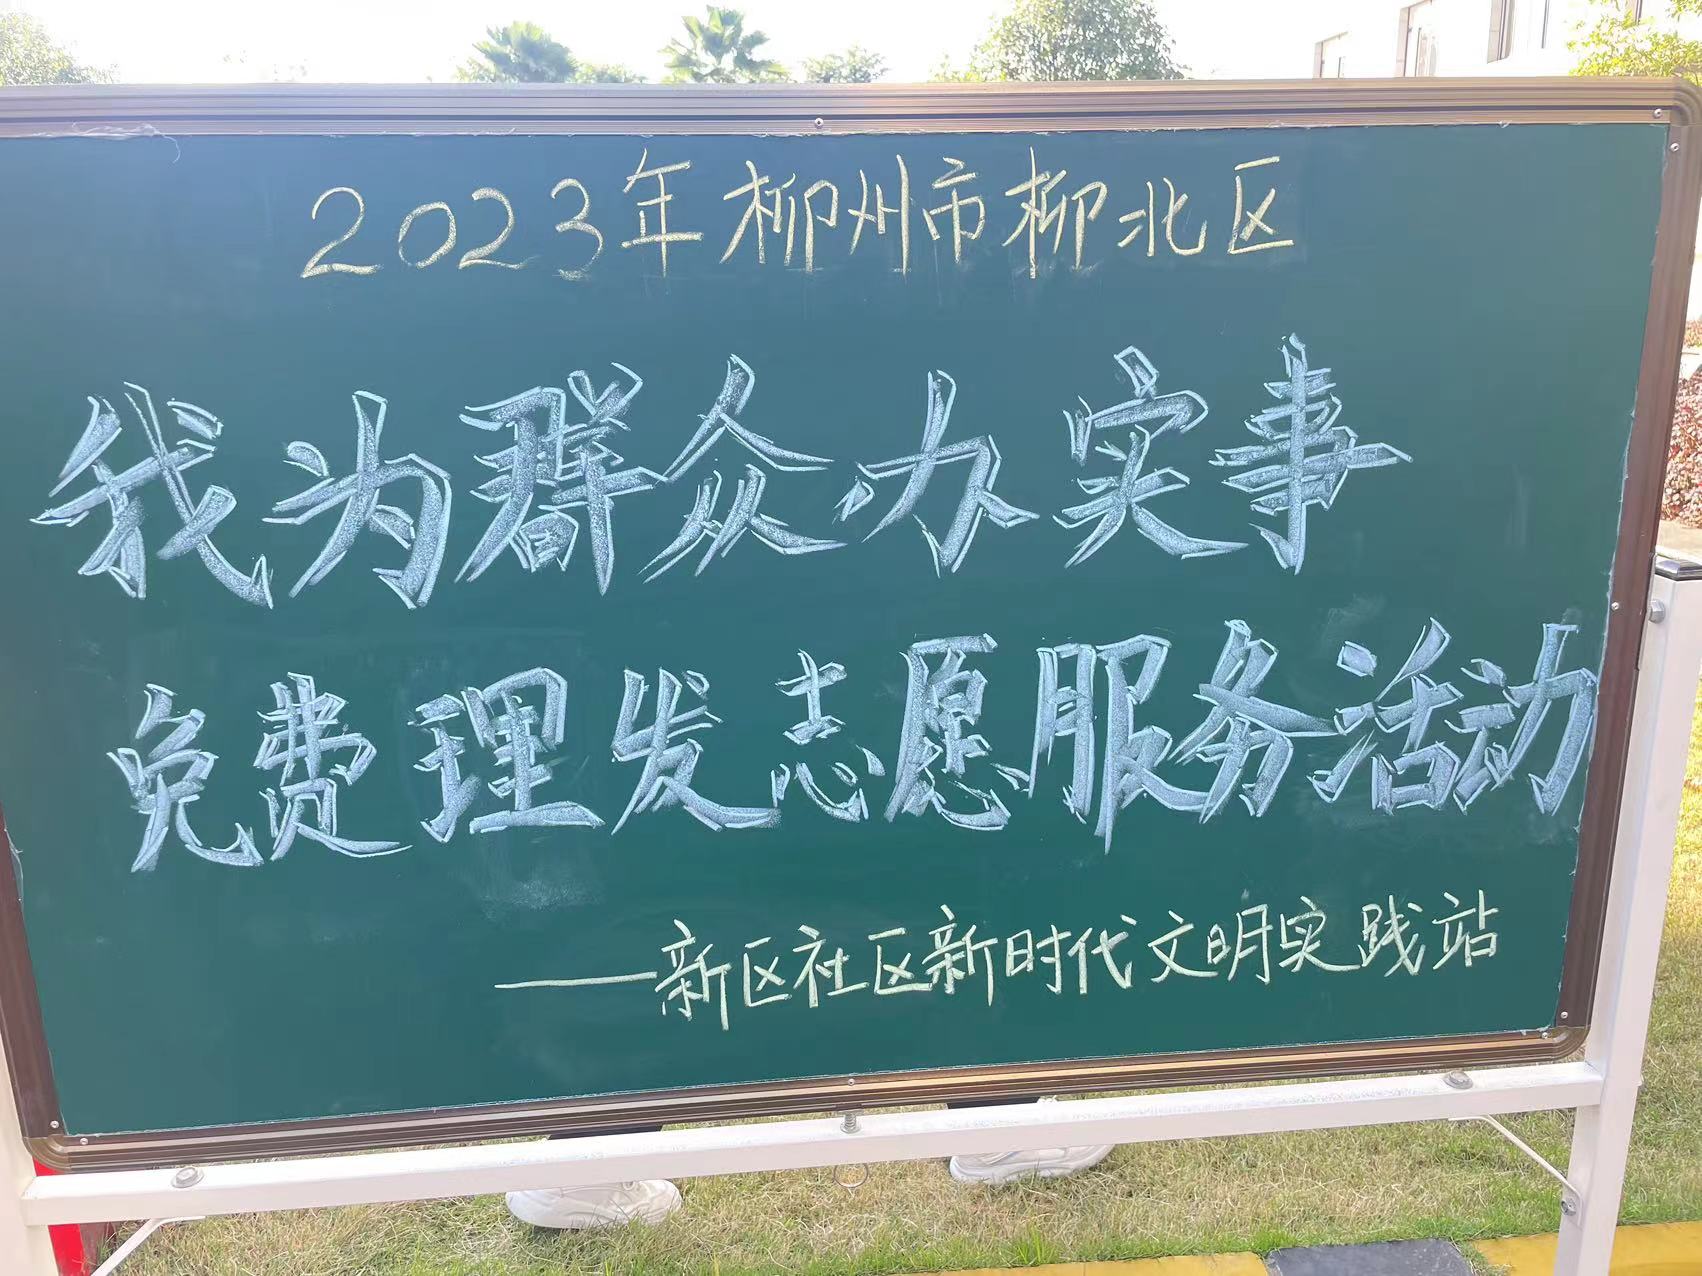 2023年柳州市柳北区
我为群众办实事
免费理发志愿服务活动
——新区社区新时代文明实践站